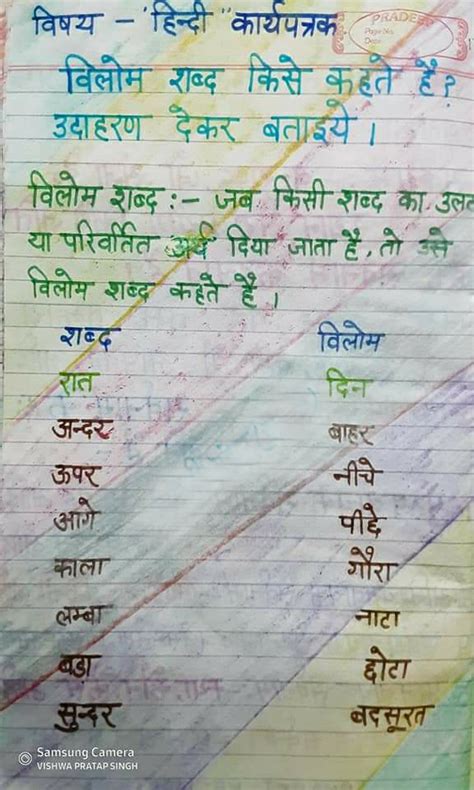 विषय - "हिन्दी" कार्यपत्रक
PRADEEP
Page No.
Date
विलोम शब्द किसे कहते हैं?
उदाहरण देकर बताइये।
विलोम शब्द :- जब किसी शब्द का उलट
या परिवर्तित अर्थ दिया जाता है, तो उसे
विलोम शब्द कहते हैं।
शब्द विलोम
रात दिन
अन्दर बाहर
ऊपर नीचे
आगे पीछे
काला गौरा
लम्बा नाटा
बडा छोटा
सुन्दर बदसूरत
Samsung Camera
VISHWA PRATAP SINGH